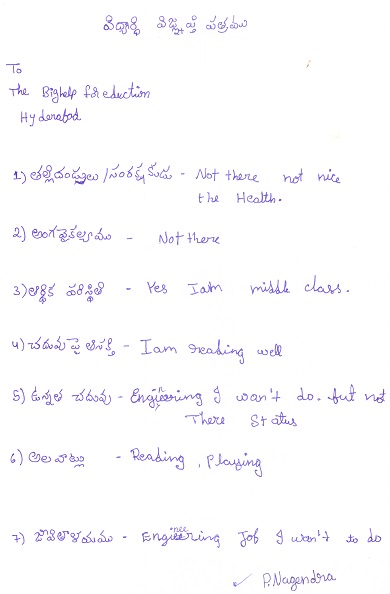 విద్యార్థి విజ్ఞప్తి పత్రము
To
The Bighelp for eduction
Hyderabad
1) తల్లిదండ్రులు / సంరక్షకుడు - Not there not nice
the Health.
2) అంగవైకల్యము - Not there
3) ఆర్థిక పరిస్థితి - Yes I am middle class.
4) చదువుపై ఆసక్తి - I am reading well
5) ఉన్నత చదువు - Engineering I wan't do. but not
There Status
6) అలవాట్లు - Reading, Playing
7) జీవితాశయము - Engineering Job I wan't to do
P. Nagendra